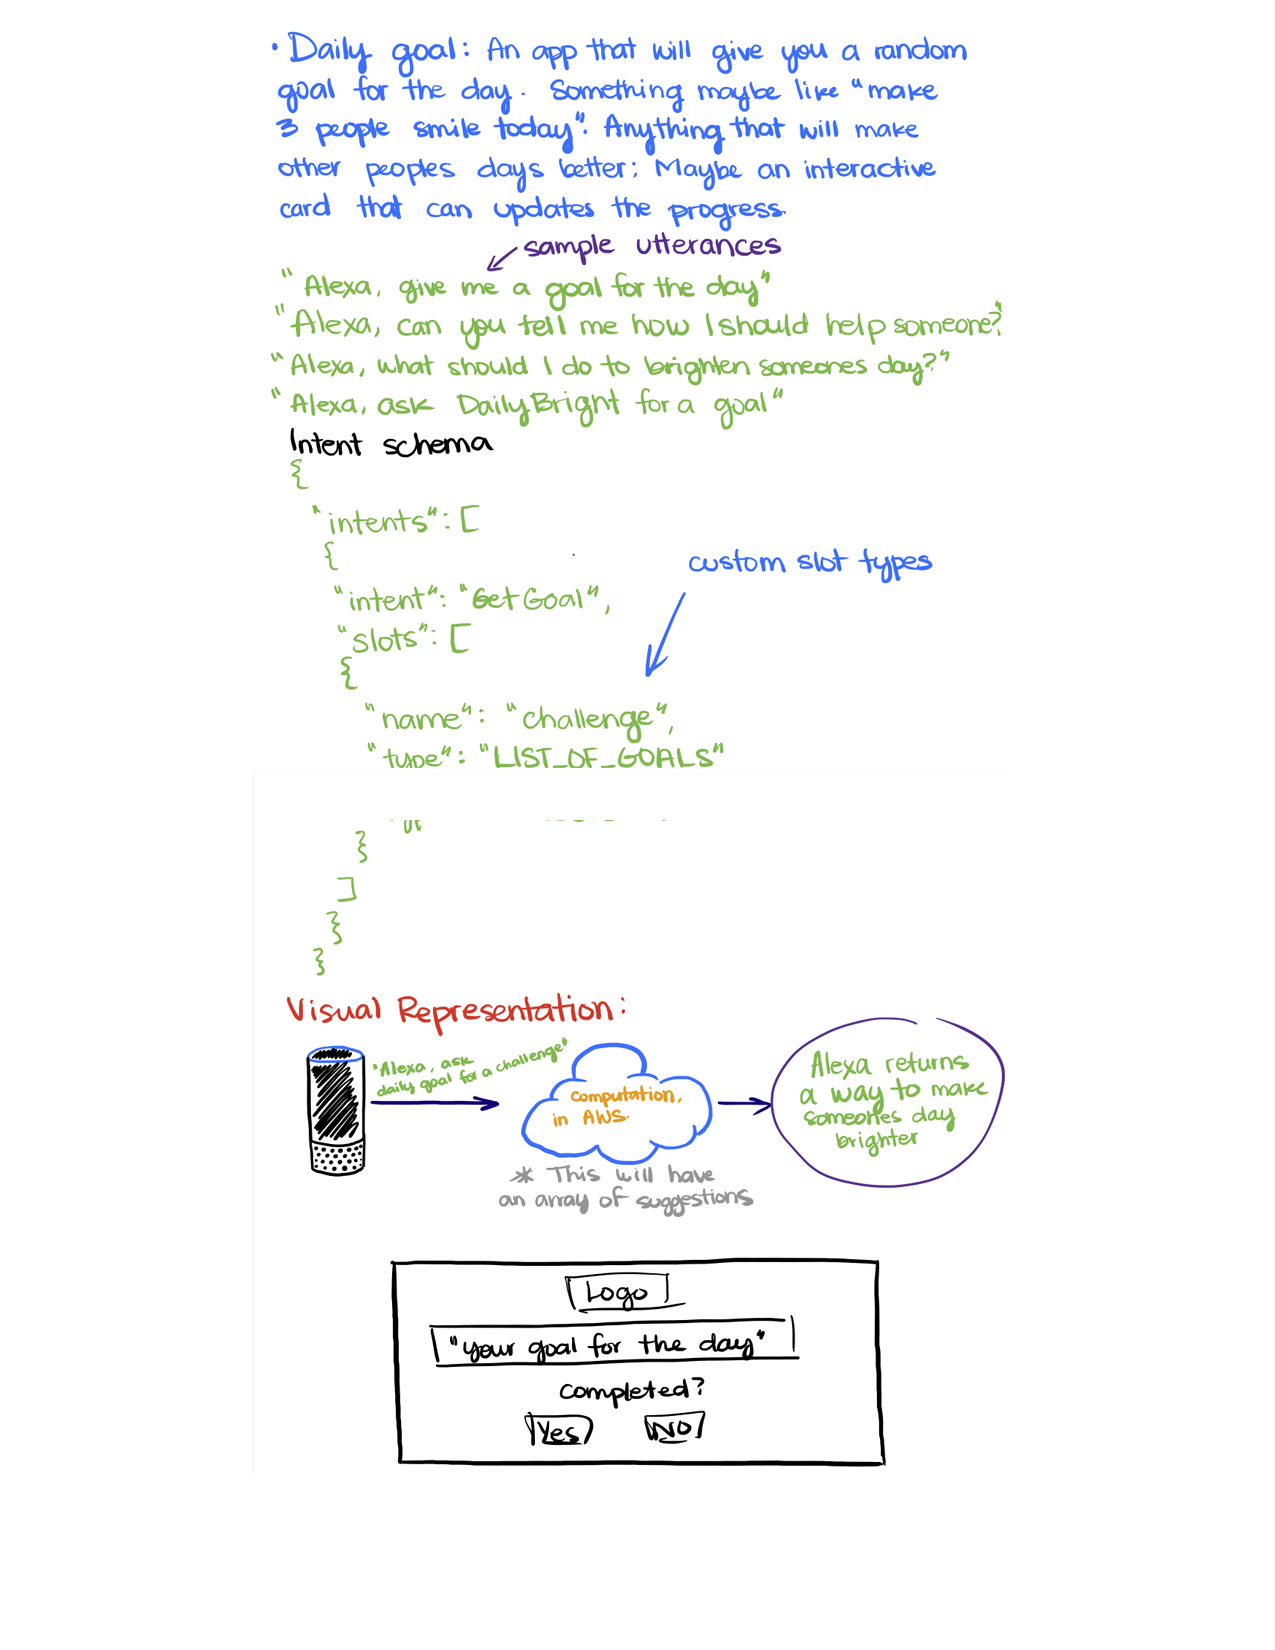 • Daily goal: An app that will give you a random
goal for the day. Something maybe like "make
3 people smile today". Anything that will make
other peoples days better; Maybe an interactive
card that can updates the progress.
sample utterances
"Alexa, give me a goal for the day"
"Alexa, can you tell me how I should help someone?"
"Alexa, what should I do to brighten someones day?"
"Alexa, ask DailyBright for a goal"
Intent schema
{
"intents": [
{
custom slot types
"intent": "GetGoal",
"slots": [
{
"name": "challenge",
"type": "LIST_OF_GOALS"
}
]
}
}
Visual Representation:
"Alexa, ask
daily goal for a challenge"
computation,
in AWS.
* This will have
an array of suggestions
Alexa returns
a way to make
someones day
brighter
Logo
"your goal for the day"
completed?
Yes No